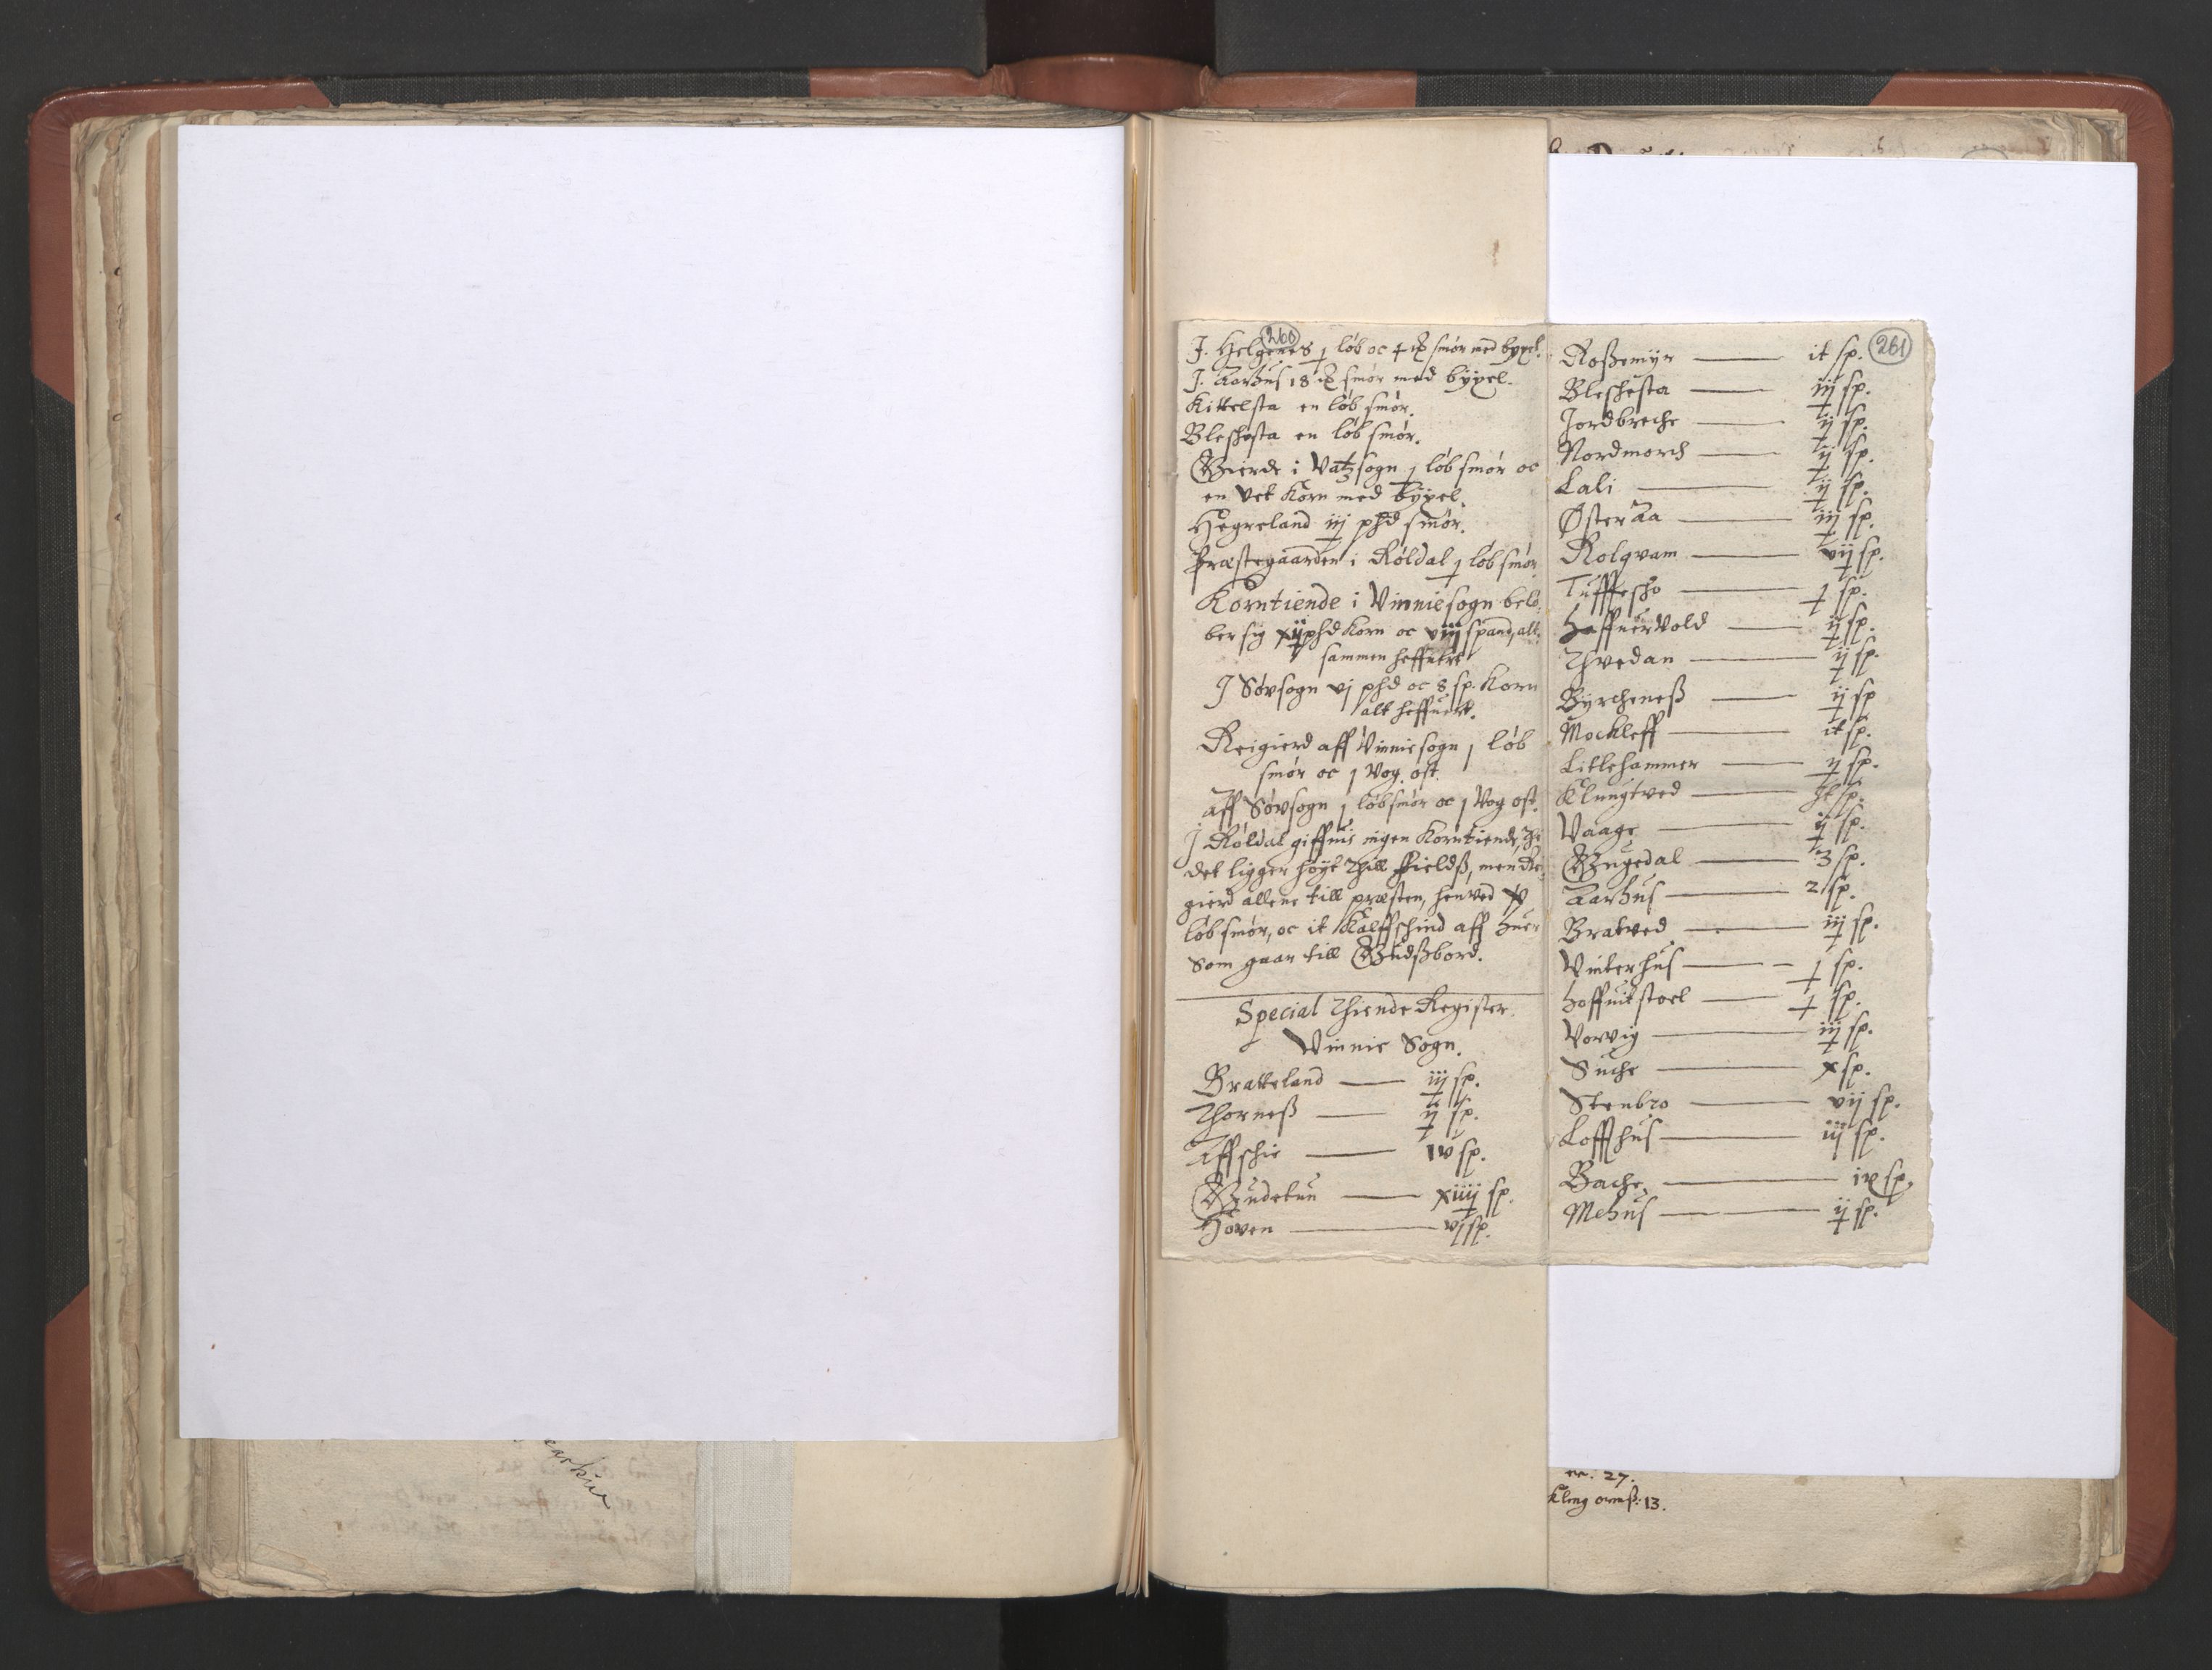 260
J. Helgenes j løb oc 4 smør med byxel.
J. Aarhus 18 smør med byxel.
Kittelsta en løb smør.
Bleskesta en løb smør.
Gierde i Vatzsogn j løb smør oc
en Vet Korn med byxel.
Hegreland iij phd smør.
Præstegaarden i Røldal j løb smør
Korntiende i Vinniesogn belø-
ber sig xij phd Korn oc viij spand, alt
sammen heffuert
J Søvsogn vj phd oc 8 sp. Korn
alt heffuert.
Reigierd aff Vinniesogn j løb
smør oc j Vog. ost.
aff Søvsogn j løb smør oc j Vog ost.
J Røldal giffuis ingen Korntiende, thi
det ligger høyt thill fieldß, men Rei-
gierd allene till præsten, henved xv
løb smør, oc it Kalffschind aff huer
Som gaar till Gudßbord.
Special Thiende Register
Vinnie Sogn.
Bratteland — iij sp.
Thorneß — ij sp.
Affschie — iv sp.
Gudetun — xiiij sp.
Hoven — vj sp.
261
Roßemyr — it sp.
Bleskesta — iij sp.
Jordbreche — ij sp.
Nordmorch — ij sp.
Lali — ij sp.
Østeraa — iij sp.
Rolqvam — vij sp.
Tufftesho — j sp.
Haffuervold — ij sp.
Thvedan — ij sp.
Byrcheneß — ij sp
Mockleff — it sp.
Litlehammer — ij sp.
Klungtved — sp.
Vaage — ij sp.
Gugedal — 3 sp.
Aarhus — 2 sp.
Bratved — iij sp.
Vinterhus — j sp.
Hoffuitstoel — j sp.
Vorvig — iij sp.
Suche — x sp.
Stenbro — vij sp.
Loffthus — iij sp.
Bache — ix sp.
Mehus — ij sp.
27.
13.